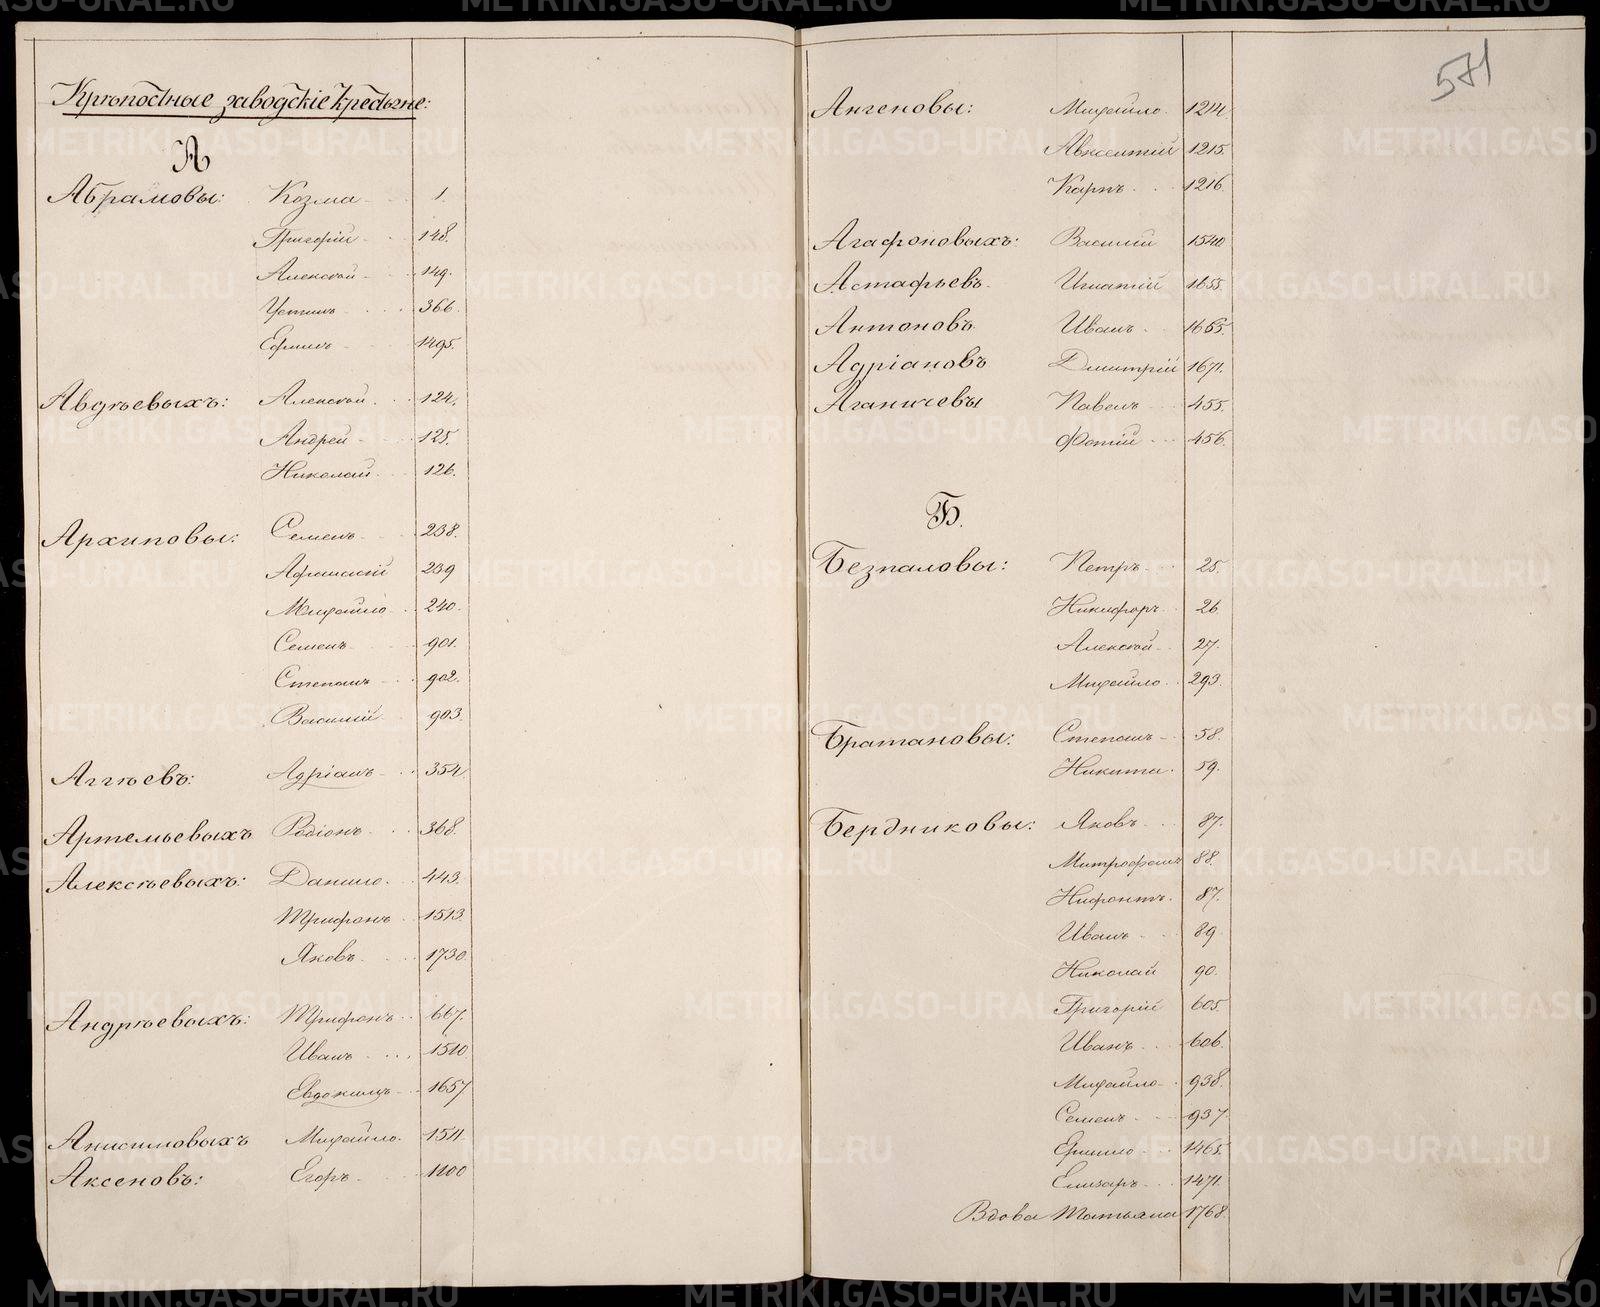 Крѣпостные заводскіе крестьяне:
А
Абрамовы: Козма 1.
Григорій 148.
Алексѣй 149.
Устинъ 366.
Ефимъ 1495.
Авдѣевыхъ: Алексѣй 124.
Андрей 125.
Николай 126.
Архиповы: Семенъ 238.
Афанасій 239
Михайло 240.
Семенъ 901.
Степанъ 902.
Василій 903.
Аггѣевъ: Адріанъ 354
Артемьевыхъ Родіонъ 368.
Алексѣевыхъ: Данило 443.
Трифонъ 1513.
Яковъ 1730.
Андрѣевыхъ: Трифонъ 667.
Иванъ 1510
Евдокимъ 1657
Анисимовыхъ Михайло 1511.
Аксеновъ: Егоръ 1100
571
Ангеновы: Михайло 1214.
Авксентій 1215.
Карпъ 1216.
Агафоновыхъ: Василій 1540
Астафьевъ Игнатій 1655.
Антоновъ Иванъ 1665.
Адріановъ Дмитрій 1671.
Аганичевы Павелъ 455.
Фотій 456.
Б.
Безпаловы: Петръ 25.
Никифоръ 26
Алексѣй 27.
Михайло 293.
Братановы: Степанъ 58.
Никита 59.
Бердниковы: Яковъ 87.
Митрофанъ 88.
Нифонтъ 87.
Иванъ 89
Николай 90.
Григорій 605.
Иванъ 606.
Михайло 938.
Семенъ 937.
Ермило 1465.
Елизаръ 1471.
Вдова Татьяна 1768.
METRIKI.GASO-URAL.RU